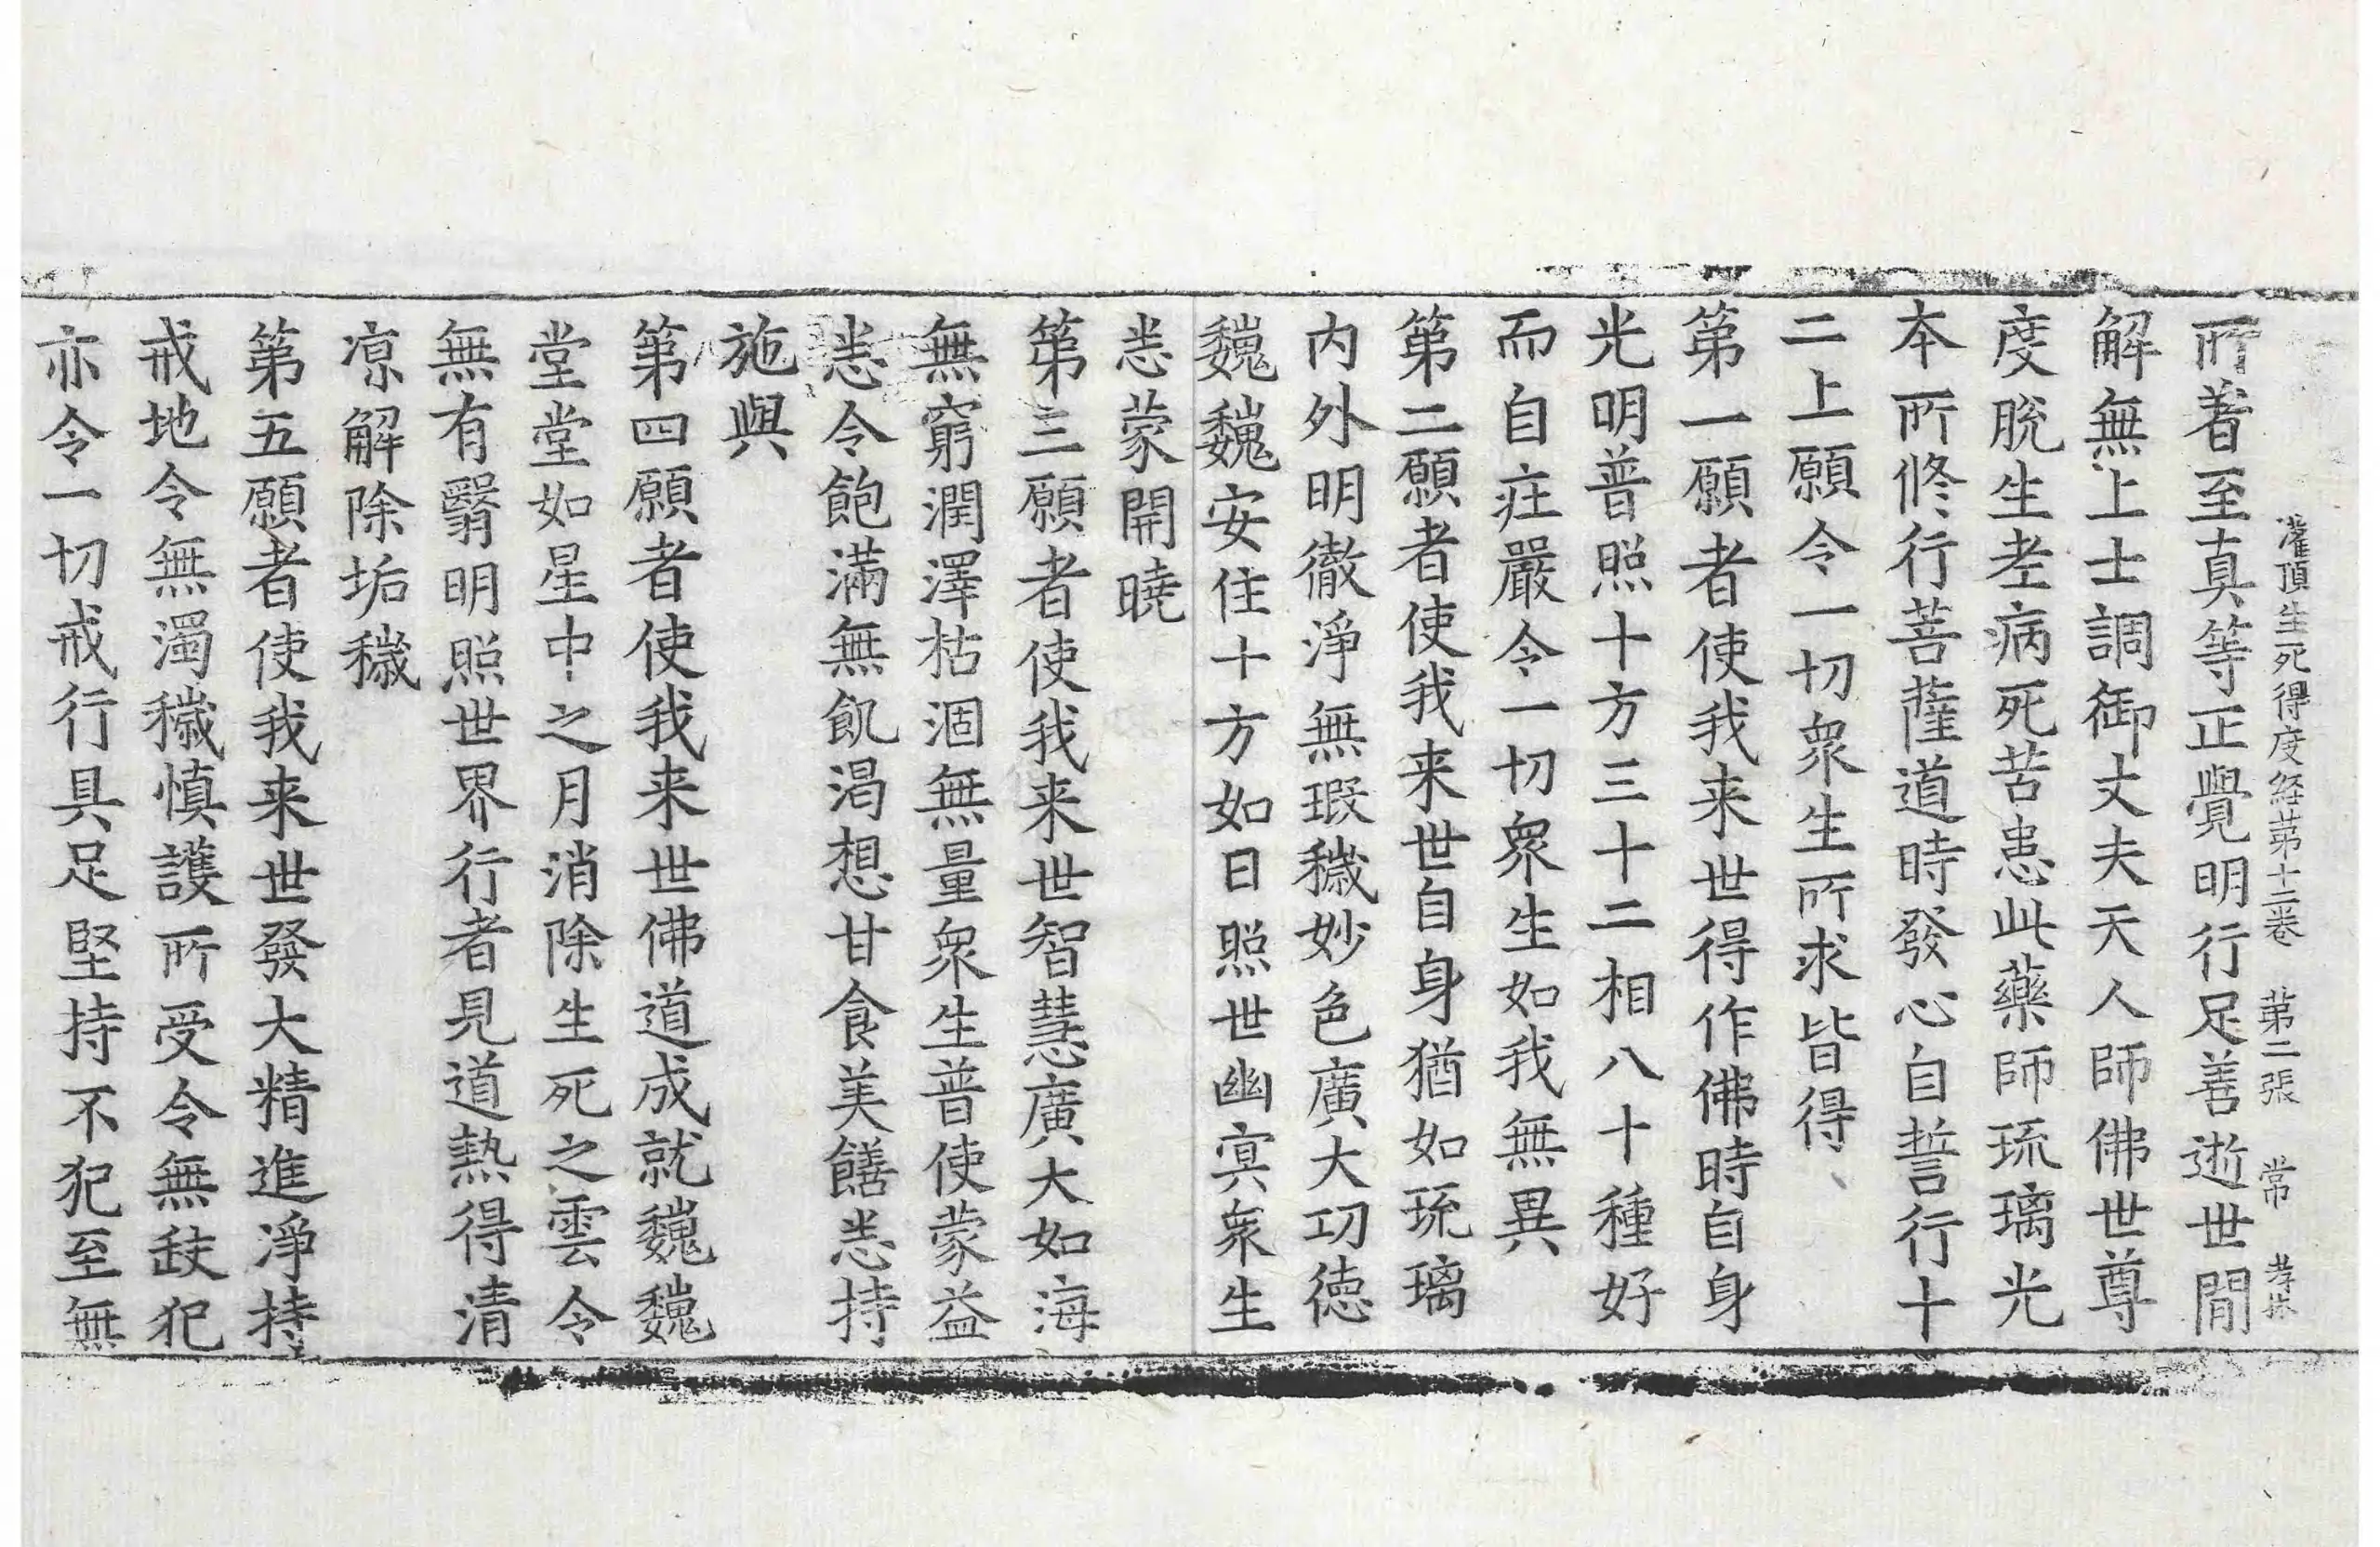 灌頂生死得度経苐十二卷　苐二張　常　孝林
所著至真等正覺明行足善逝世間
解無上士調御丈夫天人師佛世尊
度脫生老病死苦患此藥師琉璃光
本所修行菩薩道時發心自誓行十
二上願令一切衆生所求皆得
第一願者使我来世得作佛時自身
光明普照十方三十二相八十種好
而自疘嚴令一切衆生如我無異
第二願者使我来世自身猶如琉璃
内外明徹淨無瑕穢妙色廣大功徳
巍巍安住十方如日照世幽冥衆生
悉蒙開曉
第三願者使我来世智慧廣大如海
無窮潤澤枯涸無量衆生普使蒙益
悉令飽滿無飢渴想甘食美饍悉持
施與
第四願者使我来世佛道成就巍巍
堂堂如星中之月消除生死之雲令
無有翳明照世界行者見道熱得清
凉解除垢穢
第五願者使我来世發大精進淨持
戒地令無濁穢慎護所受令無缺犯
亦令一切戒行具足堅持不犯至無